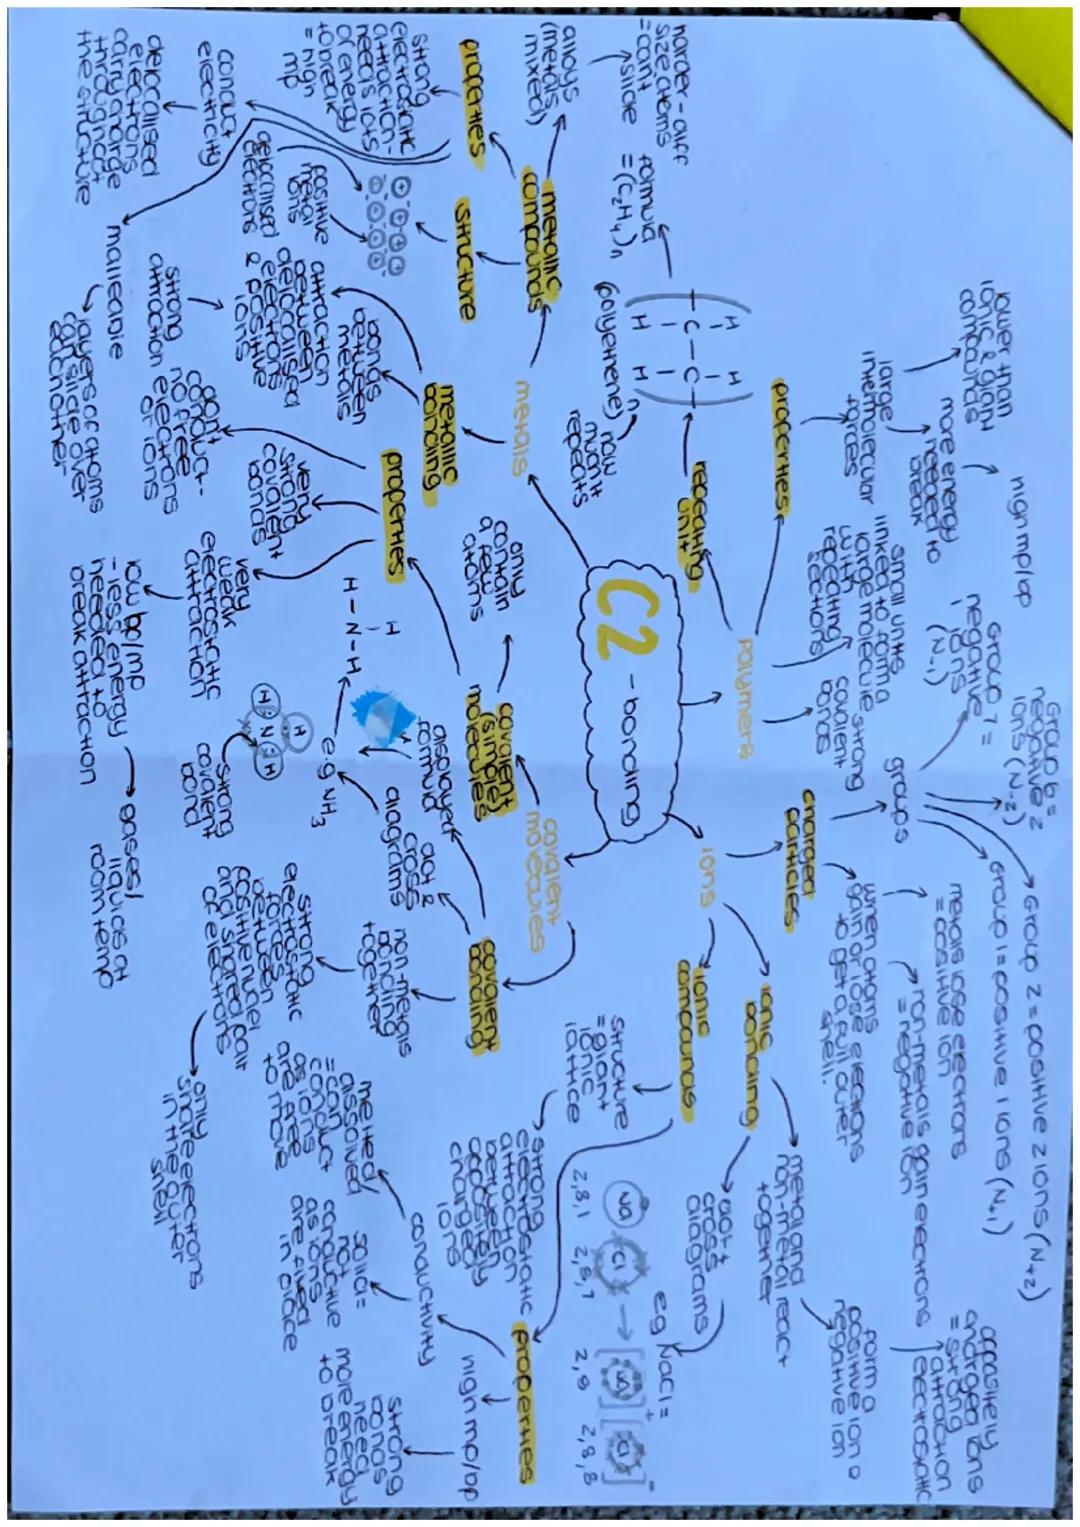 C2
- bonding
metals
metallic
compounds
alloys
(metals
mixed)
harder - diff
size atoms
= can't
slide
properties
strong
electrostatic
attraction -
needs lots
of energy
to break
= high
mp
conduct
electricity
delocalised
electrons
carry charge
throughout
the structure
malleable
layers of atoms
can slide over
eachother
structure
positive
metal
ions
delocalised
electrons
metallic
bonding
bonds
between
metals
attraction
between
delocalised
electrons
& positive
ions
strong
attraction
polymers
properties
large
intermolecular
forces
lower than
ionic & giant
compounds
more energy
needed to
break
high mp/bp
repeating
unit
H H
C - C
H H
n
(polyethene)
how
much it
repeats
formula
= (C₂H₄)n
small units
linked to form a
large molecule
with
repeating
sections
strong
covalent
bonds
covalent
molecules
covalent
(simple)
molecules
only
contain
a few
atoms
properties
don't
conduct -
no free
electrons
or ions
very
strong
covalent
bonds
very
weak
electrostatic
attraction
low bp/mp
- less energy
needed to
break attraction
gases/
liquids at
room temp
covalent
bonding
displayed
formula
dot &
cross
diagrams
e.g NH₃
H
H - N - H
H N H
H
strong
covalent
bond
non-metals
bonding
together
strong
electrostatic
forces
between
positive nuclei
and shared pair
of electrons
only
share electrons
in the outer
shell
ions
charged
particles
groups
Group 6 =
negative 2
ions (N-2)
Group 7 =
negative
1 ions
(N-1)
Group 2 = positive 2 ions (N+2)
Group 1 = positive 1 ions (N+1)
when atoms
gain or lose electrons
to get a full outer
shell.
metals lose electrons
= positive ion
non-metals gain electrons
= negative ion
ionic
bonding
metal and
non-metal react
together
form a
positive ion &
negative ion
oppositely
charged ions
= strong
electrostatic
attraction
dot +
cross
diagrams
eg NaCl =
Na Cl → [Na]+ [Cl]-
2,8,1 2,8,7 2,8 2,8,8
ionic
compounds
structure
= giant
ionic
lattice
strong
electrostatic
attraction
between
oppositely
charged
ions
properties
high mp/bp
strong
bonds
need
more energy
to break
conductivity
melted/
dissolved
= can
conduct
as ions
are free
to move
solid =
not
conductive
as ions
are fixed
in place